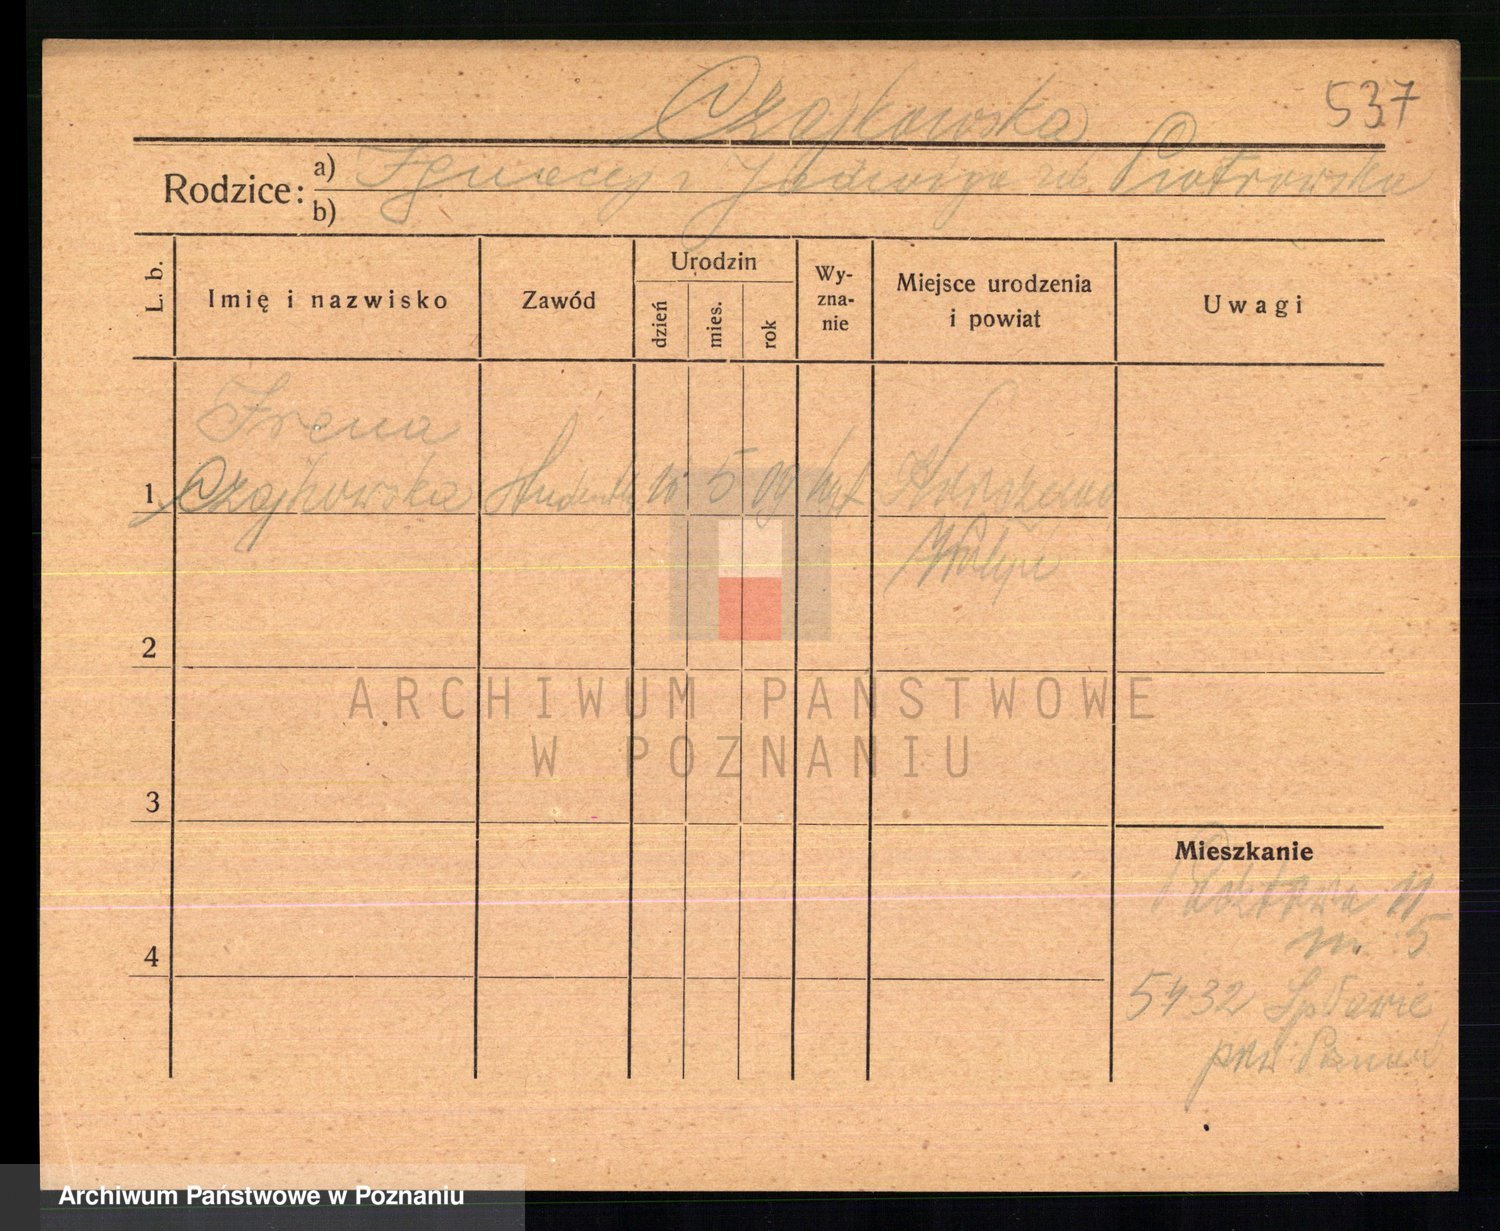 Czajkowska
537
Rodzice:
a) Ignacy i Jadwiga zd. Piotrowska
b)
L. b.
Imię i nazwisko
Zawód
Urodzin
dzień
mies.
rok
Wy-
zna-
nie
Miejsce urodzenia
i powiat
Uwagi
Irena
1 Czajkowska Studentka 10 5 09
Wołyń
2
ARCHIWUM PAŃSTWOWE
W POZNANIU
3
Mieszkanie
11
m. 5
4
5432
pow. Poznań
Archiwum Państwowe w Poznaniu